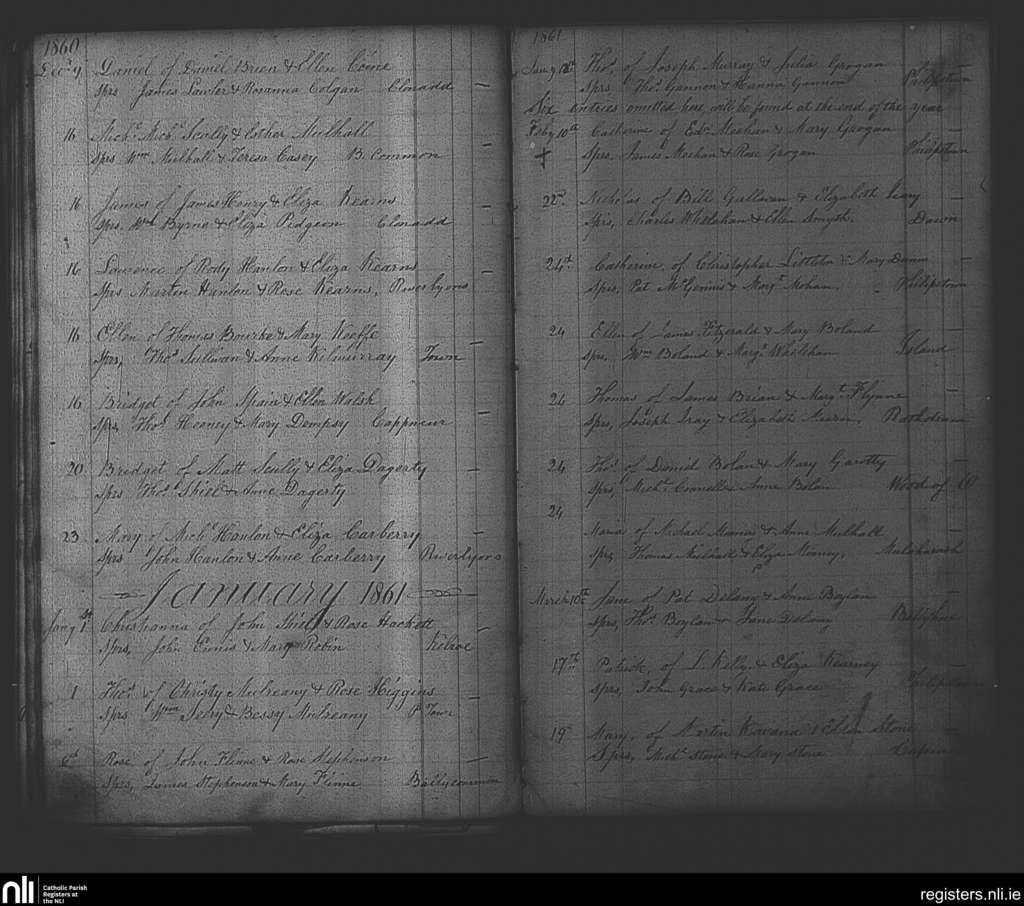 1860
Decr 9 Daniel of Daniel Brien & Ellen Coine
Sprs James Lawler & Rosanna Colgan Clonadd
16 Michl Michl Scully & Esther Mulhall
Sprs Wm Mulhall & Teresa Casey B. Common
16 James of James Henry & Eliza Kearns
Sprs. Wm Byrne & Eliza Pidgeon Clonadd
16 Lawrence of Rody Hanlon & Eliza Kearns
Sprs Martin Hanlon & Rose Kearns,
16 Ellen of Thomas Bourke & Mary Keeffe
Sprs, Thos Sullivan & Anne Kilmurray Town
16 Bridget of John Spain & Ellen Walsh
Sprs, Thos Heeney & Mary Dempsy Cappincur
20 Bridget of Matt Scully & Eliza Dagerty
Sprs Thos Shiel & Anne Dagerty
23 Mary of Michl Hanlon & Eliza Carberry
Sprs John Hanlon & Anne Carberry
January 1861
Jany 1st Christianna of John Shiel & Rose Hackett
Sprs, John & Mary Robin
1 Thos of Christy Mulreany & Rose Higgins
Sprs Wm & Bessy Mulreany P. Town
6th Rose of John Flinne & Rose Stephenson
Sprs, James Stephenson & Mary Flinne Ballycommon
1861
Jany 18th Thos, of Joseph Murray & Julia Grogan
Sprs Thos Gannon & Hanna Gannon Philipstown
Six entries omitted here, will be found at the end of the year
Feby 10th Catherine of Edw Meehan & Mary Grogan
Sprs, James Meehan & Rose Grogan Philipstown
22d. Nicholas of Bill & Elizabeth
Sprs, Charles Whelehan & Ellen Smyth
24th Catherine, of Christopher Littleton & Mary Dunn
Sprs, Pat McGinnis & Margt Mohan, Philipstown
24 Ellen of James Fitzgerald & Mary Boland
Sprs, Wm Boland & Margt Whelehan
24 Thomas of James Brian & Margt Flynne
Sprs, Joseph & Elizabeth
24 Thos of Daniel Bolan & Mary Garotty
Sprs, Michl & Anne Bolan Wood of O
24
Maria of Michael & Anne Mulhall
Sprs, Thomas Mulhall & Eliza
March 10th Jane of Pat Delany & Anne Boylan
Sprs, Thos Boylan & Jane Delany
17th Patrick, of L. Kelly, & Eliza Kearney
Sprs, John Grace & Kate Grace Philipstown
19 Mary, of Kavana & Ellen Stone
Sprs, Michl Stone & Mary Stone
nli Catholic Parish
Registers at
the NLI
registers.nli.ie